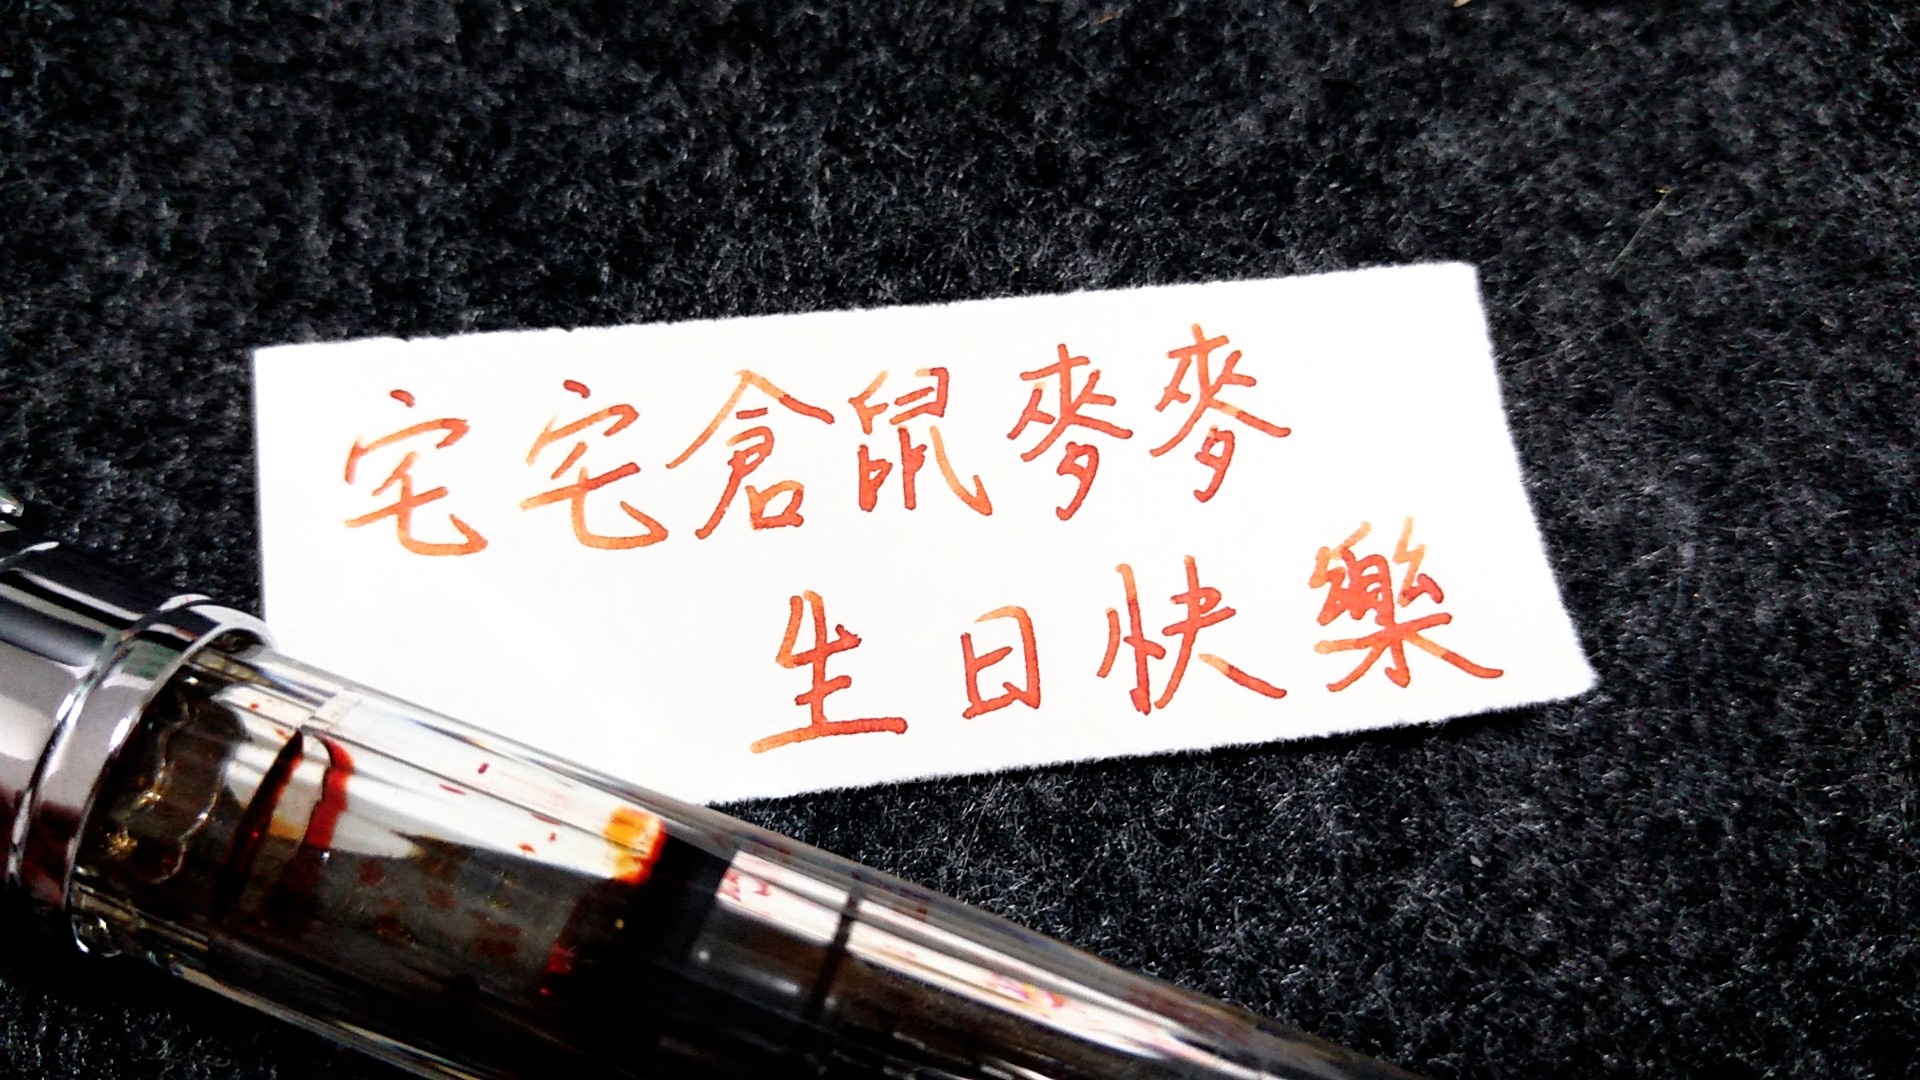 宅宅倉鼠麥麥
生日快樂